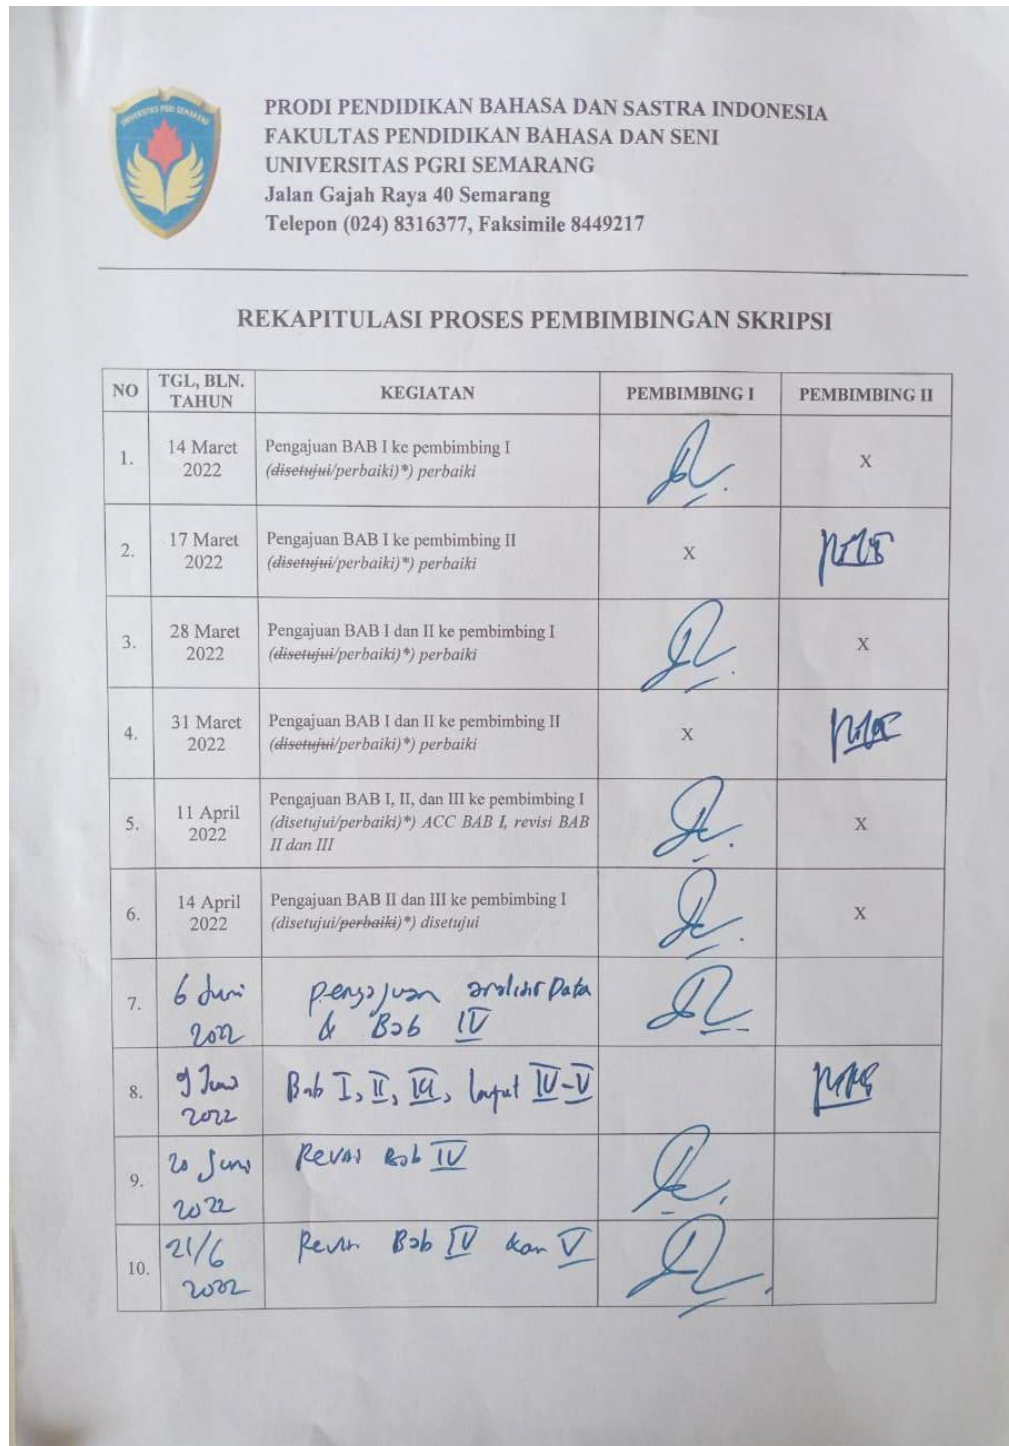 UNIVERSITAS PGRI SEMARANG
PRODI PENDIDIKAN BAHASA DAN SASTRA INDONESIA
FAKULTAS PENDIDIKAN BAHASA DAN SENI
UNIVERSITAS PGRI SEMARANG
Jalan Gajah Raya 40 Semarang
Telepon (024) 8316377, Faksimile 8449217
REKAPITULASI PROSES PEMBIMBINGAN SKRIPSI
NO
TGL, BLN.
TAHUN
KEGIATAN
PEMBIMBING I
PEMBIMBING II
1.
14 Maret
2022
Pengajuan BAB I ke pembimbing I
(disetujui/perbaiki)*) perbaiki
X
2.
17 Maret
2022
Pengajuan BAB I ke pembimbing II
(disetujui/perbaiki)*) perbaiki
X
3.
28 Maret
2022
Pengajuan BAB I dan II ke pembimbing I
(disetujui/perbaiki)*) perbaiki
X
4.
31 Maret
2022
Pengajuan BAB I dan II ke pembimbing II
(disetujui/perbaiki)*) perbaiki
X
5.
11 April
2022
Pengajuan BAB I, II, dan III ke pembimbing I
(disetujui/perbaiki)*) ACC BAB I, revisi BAB
II dan III
X
6.
14 April
2022
Pengajuan BAB II dan III ke pembimbing I
(disetujui/perbaiki)*) disetujui
X
7.
6 Juni
2022
Pengajuan analisis Data
& Bab IV
8.
9 Juni
2022
Bab I, II, III, lanjut IV-V
9.
20 Juni
2022
Revisi Bab IV
10.
21/6
2022
Revisi Bab IV dan V